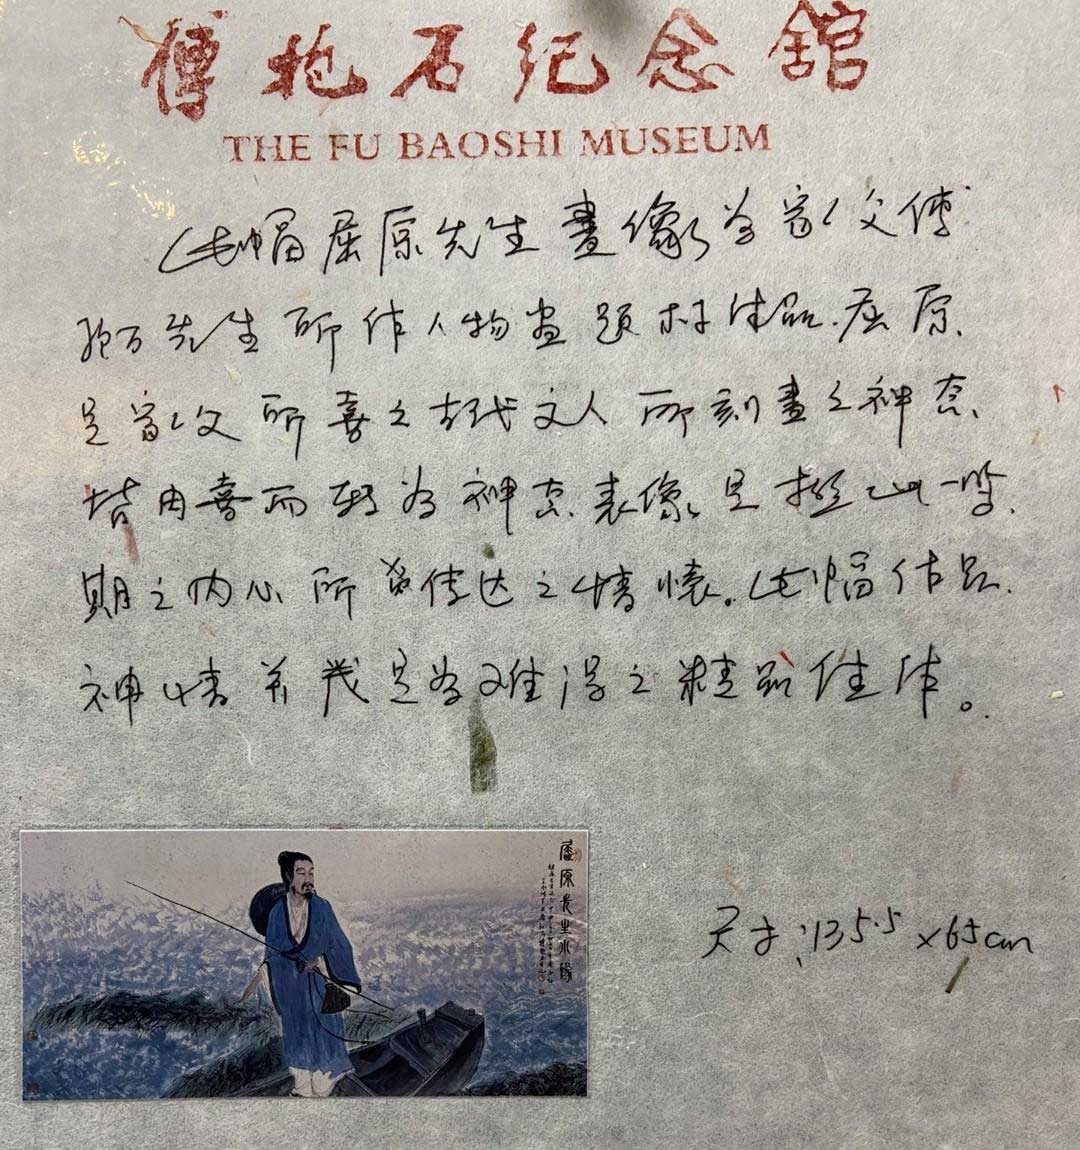 傅抱石纪念館
THE FU BAOSHI MUSEUM
此幅屈原先生畫像为家父傅
抱石先生所作人物画题材作品.屈原.
是家父所喜之古代文人所刻畫之神态.
皆由喜而转为神态表像是 此一时.
期之内心所要传达之情懷。此幅作品.
神情并茂是为难得之精品佳作。
屈原先生小像
尺寸:135.5×65cm